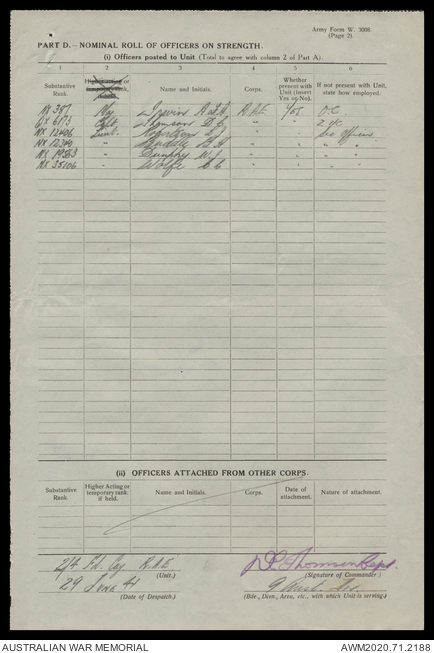 Army Form W. 3008.
(Page 2)
PART D.—NOMINAL ROLL OF OFFICERS ON STRENGTH.
(i) Officers posted to Unit (Total to agree with column 2 of Part A):
1 2 3 4 5 6
Substantive Rank. Higher acting or temporary rank, if held. Name and Initials. Corps. Whether present with Unit (Insert Yes or No). If not present with Unit, state how employed.
NX 387 R.A.E. Yes O.C.
Thomson D.C. " " 2 i/c
NX 12406 Lieut. " "
NX 12340 " " " " "
" Dunphy W.J. " " " "
NX 35106 " Wolfe " " " "
(ii) OFFICERS ATTACHED FROM OTHER CORPS.
Substantive Rank. Higher Acting or temporary rank if held. Name and Initials. Corps. Date of attachment. Nature of attachment.
2/4 Fd. Coy R.A.E. Thomson Capt.
(Unit.) (Signature of Commander)
29 June 41 9 Aust. Div.
(Date of Despatch.) (Bde., Divn., Area, etc., with which Unit is serving.)
AUSTRALIAN WAR MEMORIAL AWM2020.71.2188